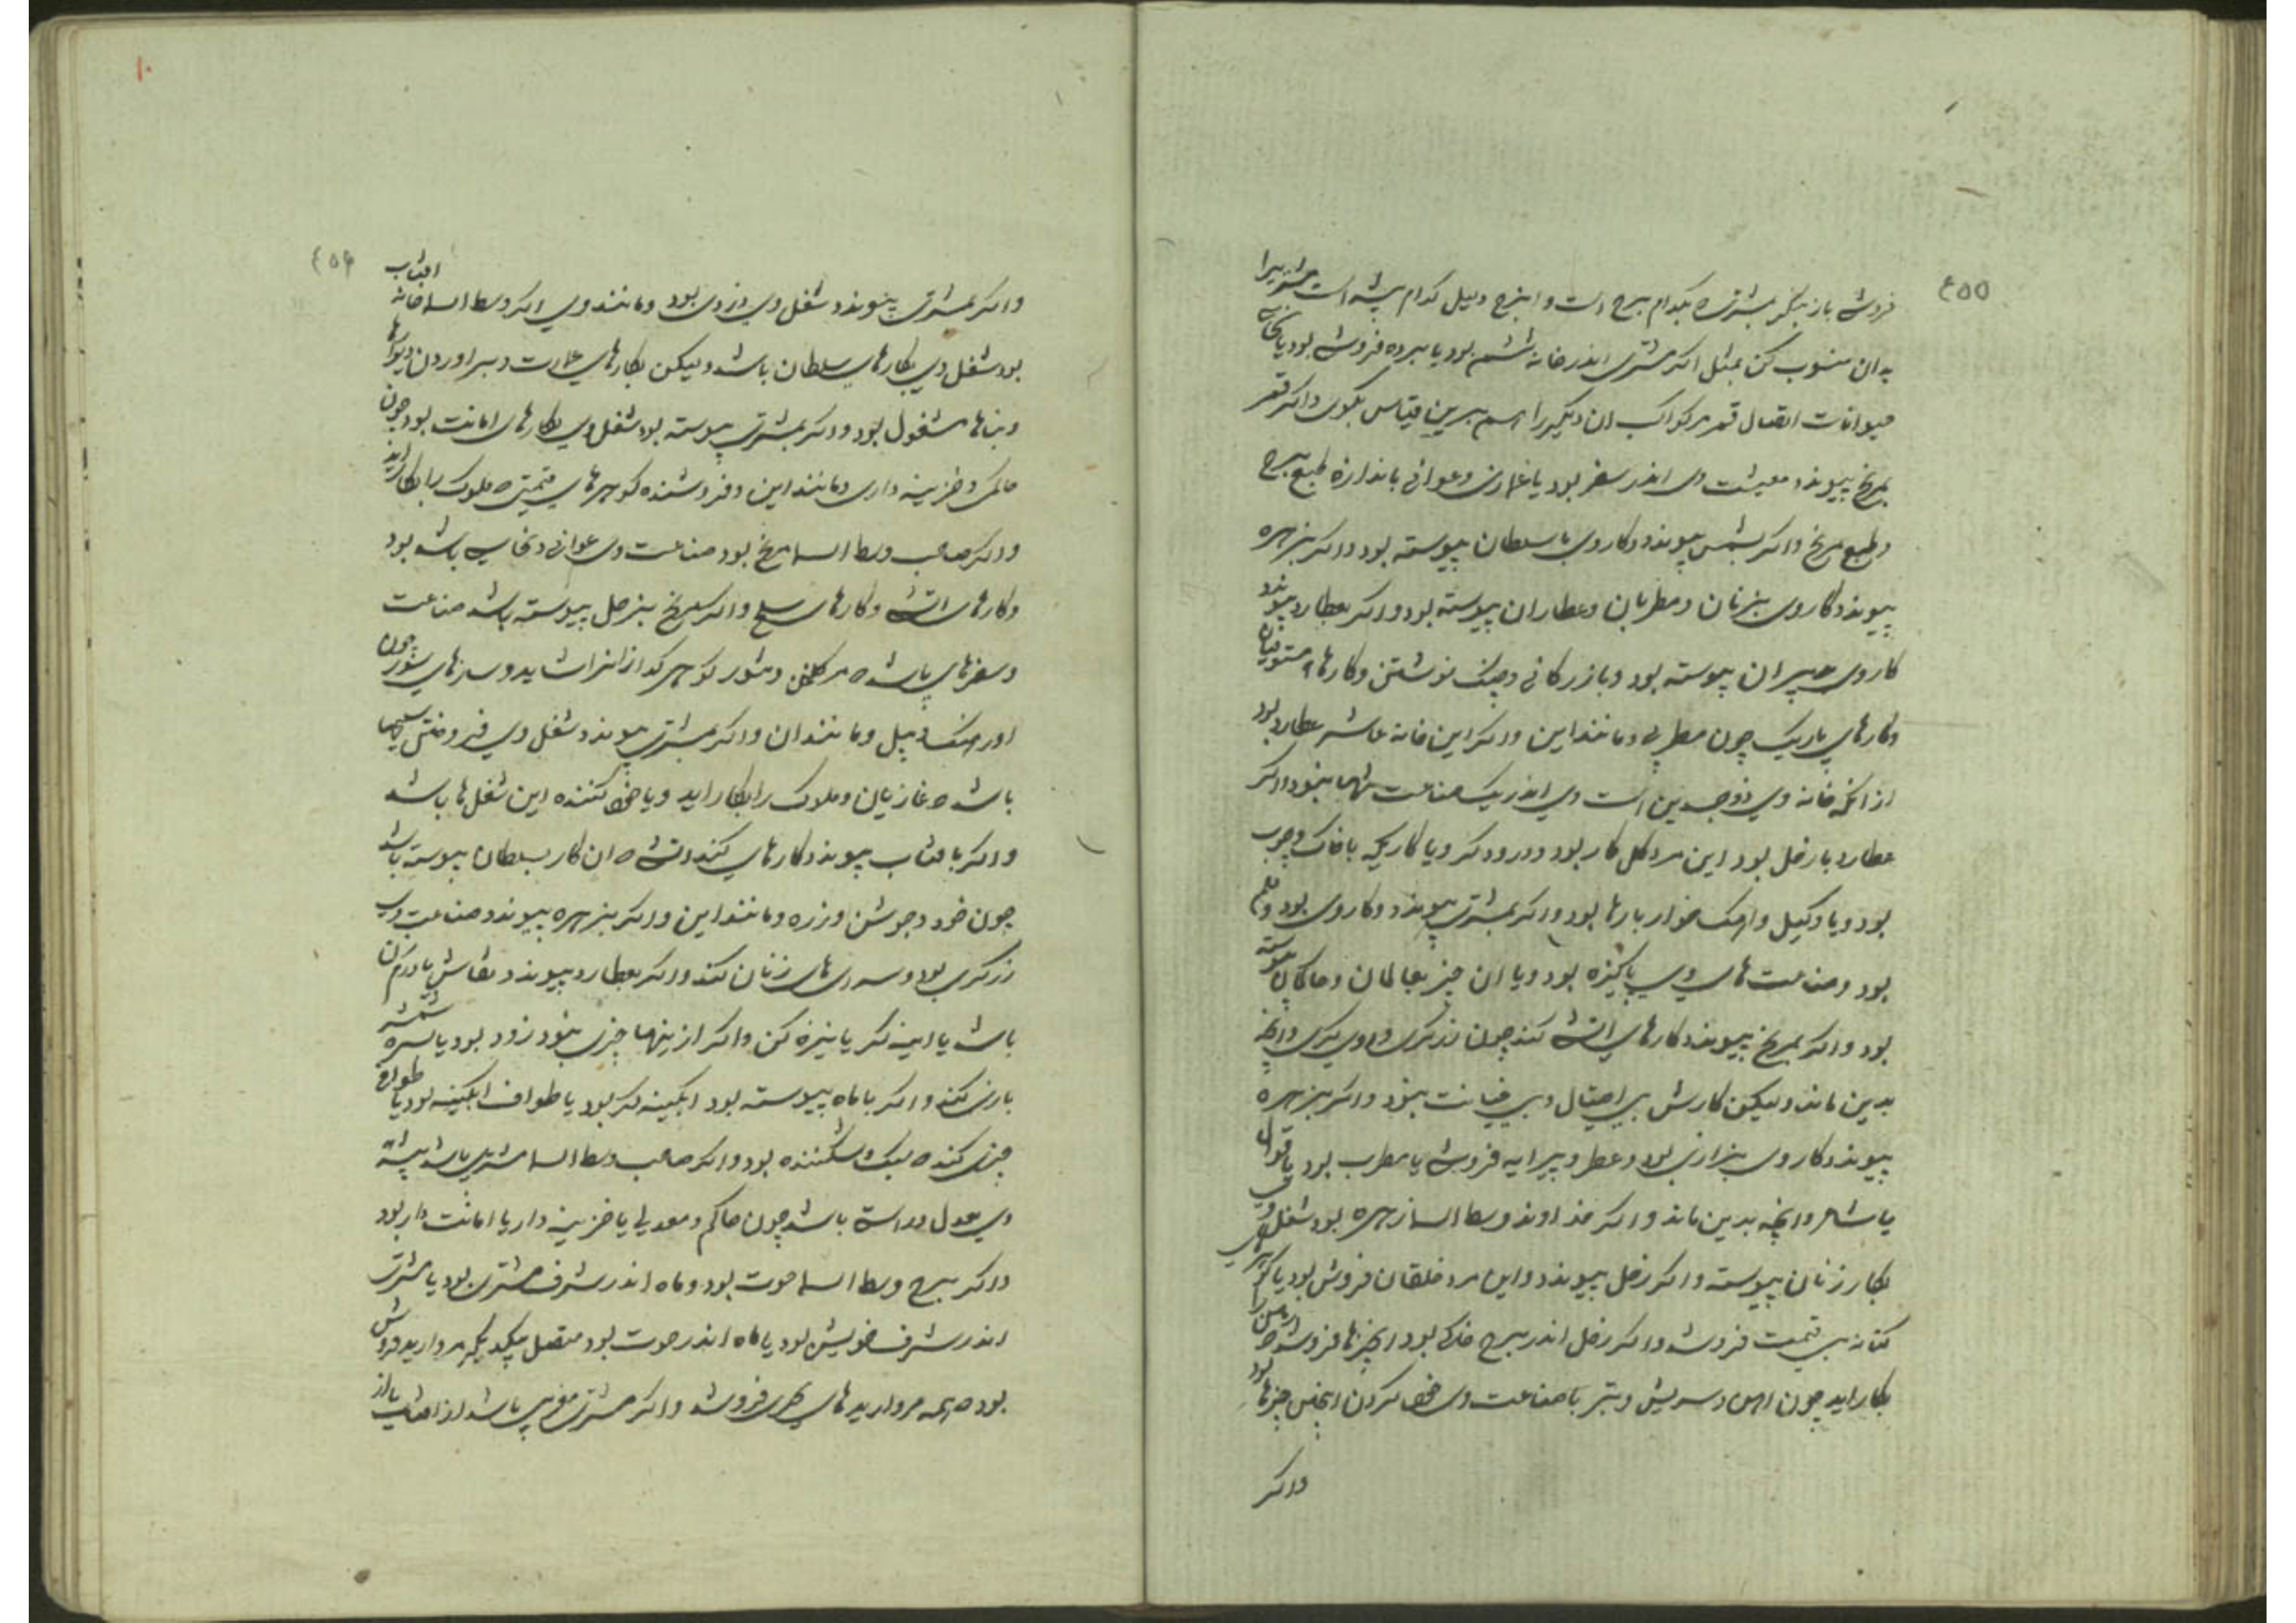 ٤٥٥
فروشی باز بنگر بمشتری که بکدام برج است و این برج دلیل کدام پیشه است مشتریرا
بدان منسوب کن بمثل اگر مشتری اندر خانه ششم بود یا برده فروشی بود یا
حیوانات اتصال قمر کواکب ان دیگر را هم برین قیاس بکوی واکر قمر
بمریخ پیوندد معیشت وی اندر سفر بود یا غمازی وعوانی باندازه طبع برج
وطبع مریخ واکر بشمس پیوندد وکار وی با سلطان پیوسته بود واکر بزهره
پیوندد کار وی بزنان ومطربان وعطاران پیوسته بود واکر بعطارد پیوندد
کار وی دبیران پیوسته بود وبازرکانی وچک نوشتن وکارها مستوفیان
وکارهای باریک چون مطربی ومانند این واکر این خانه عاشر عطارد بود
از انکه خانه وی ذو جسدین است وی اندر یک صناعت تنها نبود واکر
عطارد با زحل بود این مرد کل کار بود ودرودکر ویا کاریکه با خاک وچوب
بود ویا وکیل بارها بود واکر بمشتری پیوندد وکار وی بود وقلم
بود وصناعت های وی پاکیزه بود ویا ان چیز بعالمان وحاکمان پیوسته
بود واکر بمریخ پیوندد کارهای اتشی کند چون زرکری وانچه
بدین ماند ولیکن کارش بی احتیال وبی خیانت نبود واکر بزهره
پیوندد کار وی بزازی بود وعطر وپیرایه فروشی یا مطرب بود یا قوال
یا شاعر وانچه بدین ماند واکر خداوند وسط السما زهره بود شغل وی
بکار زنان پیوسته واکر زحل پیوندد واین مرد خلقان فروش بود یا
کتانه بی قیمت فروشد واکر زحل اندر برج خاکی بود این چیزها فروشد که
بکار اید چون اهن وسریش وتبر یا صناعت وی کردن این چیزها بود
واکر
١٠
٤٥٦
واکر بمشتری پیوندد شغل وی درزی بود ومانند وی اکر وسط السما خانه افتاب
بود شغل وی بکارهای سلطان باشد ولیکن بکارهای عمارت وبراوردن دیوارها
وبناها مشغول بود واکر بمشتری پیوسته بود شغل وی بکارهای امانت بود چون
حاکمی وخزینه داری ومانند این وفروشنده کوهرهای قیمتی که ملوک را بکار اید
واکر صاحب وسط السما مریخ بود صناعت وی عوانی ونخاسی باشد بود
وکارهای اتشی وکارهای سلح واکر مریخ بزحل پیوسته باشد صناعت
وسفرهای باشد کوهر کداز وسازهای ستور چون
ومانند ان واکر بمشتری پیوندد شغل وی فروختن سلیحها
باشد که غازیان وملوک را بکار اید ویا کننده این شغل ها باشد
واکر بافتاب پیوندد کارهای کند اتشی که ان کار بسلطان پیوسته باشد
چون خود وجوشن وزره ومانند این واکر بزهره پیوندد صناعت وی
زرکری بود وسوری های زنان کند واکر بعطارد پیوندد نقاش یا درم کن
باشد یا اینه کر یا نیزه کن واکر از ینها چیزی نبود زود بود یا شمشیر
بازی کند واکر با ماه پیوسته بود ابکینه کر بود یا طواف ابکینه بود یا
چیزی کند که سبک وشکننده بود واکر صاحب وسط السما مشتری باشد پیشه
وی بعدل وراستی باشد چون حاکم ومعدلی یا خزینه دار یا امانت دار بود
واکر برج وسط السما حوت بود وماه اندر شرف مشتری بود یا مشتری
اندر شرف خویش بود یا ماه اندر حوت بود متصل بیکدیکر مروارید فروش
بود که همه مرواریدهای بحری فروشد واکر مشتری مغربی باشد از افتاب یا از